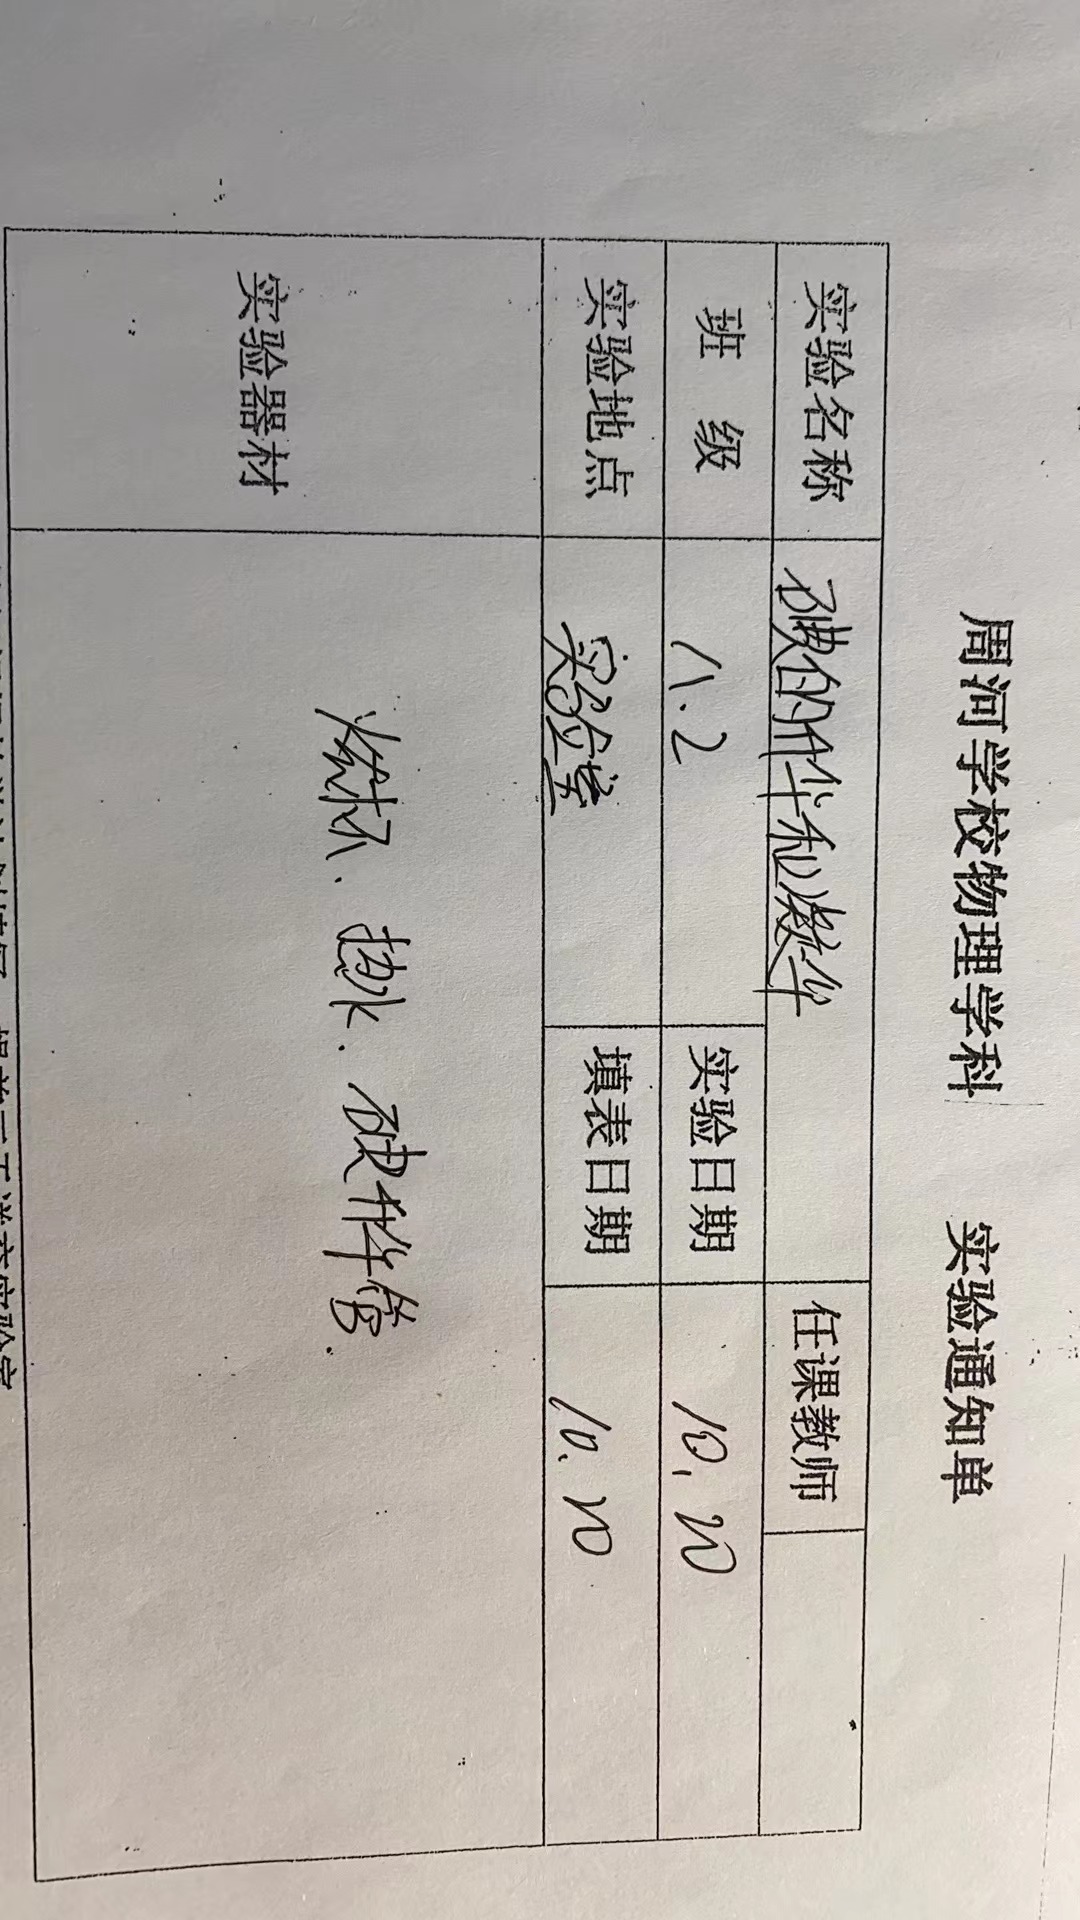 周河学校物理学科 实验通知单
实验名称 碘的升华和凝华 任课教师
班 级 八.2 实验日期 10.20
实验地点 实验室 填表日期 10.20
实验器材 烧杯. 热水. 碘升华管.